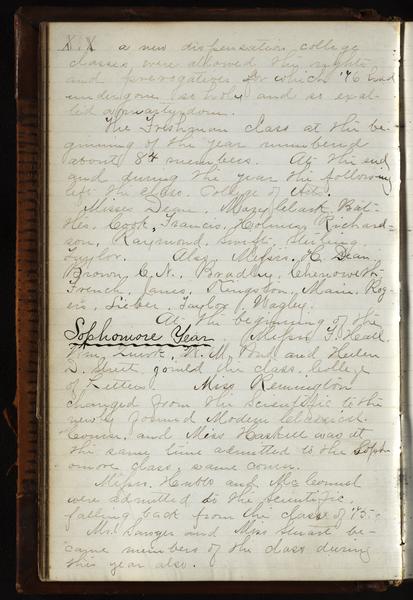 X X a new dispensation college
classes were allowed the rights
and prerogatives for which '76 had
undergone so holy and so exal-
ted a martyrdom.
The Freshman class at the be-
ginning of the year numbered
about 84 members. At the end
and during the year the following
left the class. College of Arts.
Misses Dean, Mary Clark, Bat-
tles, Cook, Francis, Holmes, Richard-
son, Raymond, Swift, Sterling,
Taylor. Also Messrs. H. Dean,
Brown, C. N. Bradley, Chenoweth,
French, Jones, Kingston, Main, Rog-
ers, Sieber, Taylor, Wagley.
At the beginning of the
Sophomore Year Messrs. F. Hall,
Wm. W. M. and Helen
D. Street joined the class. College
of Letters. Miss Remington
changed from the Scientific to the
newly formed Modern Classical
Course, and Miss Haskell was at
the same time admitted to the Soph-
omore class, same course.
Messrs. Hubbs and McConnel
were admitted to the Scientific,
falling back from the class of '75.
Mr. Sawyer and Miss Stuart be-
came members of the class during
this year also.